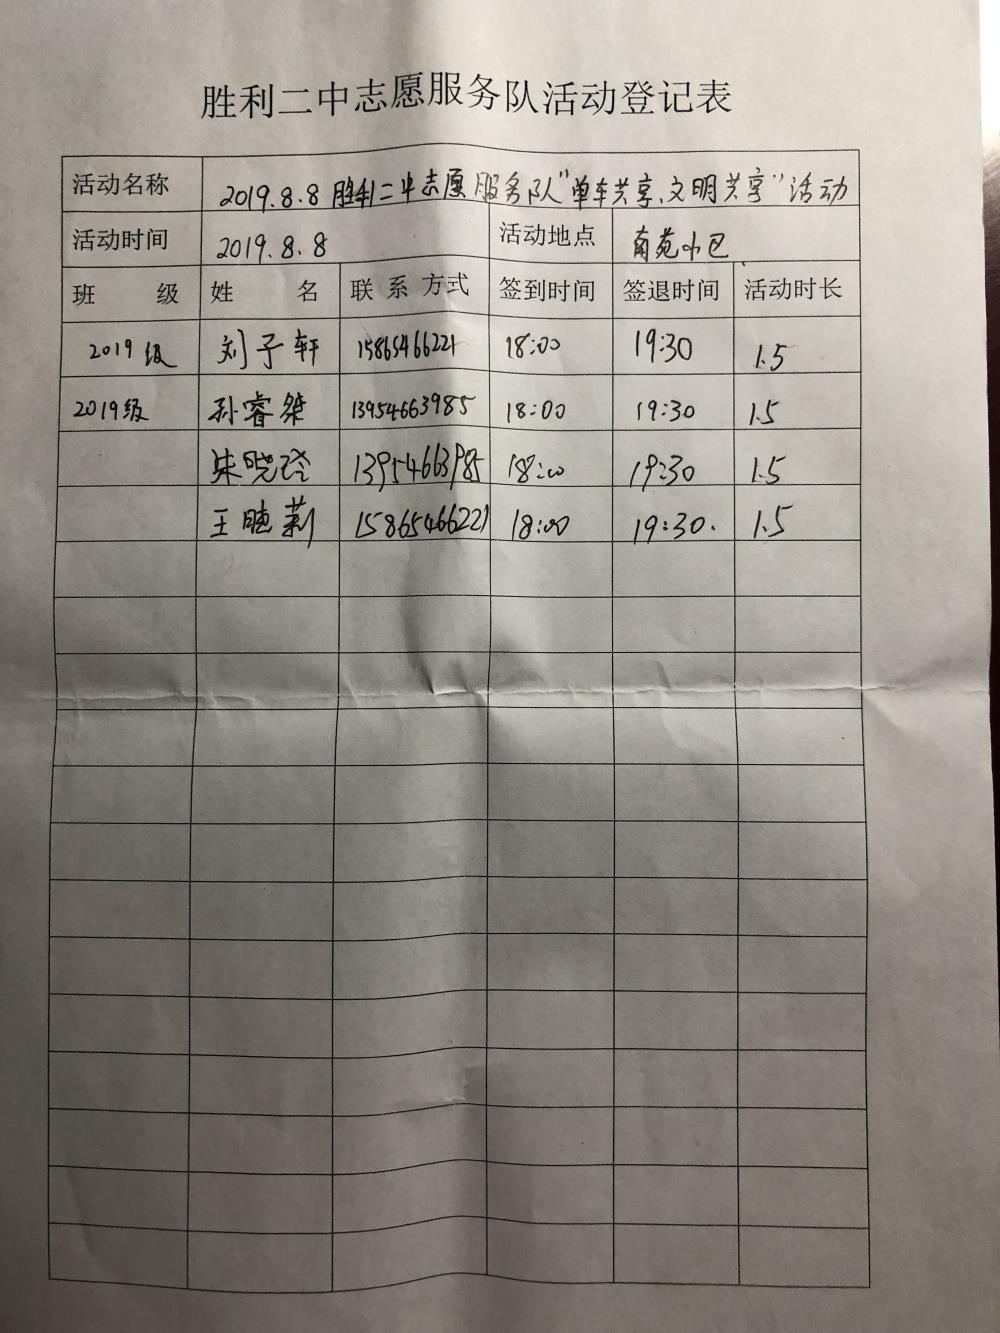 胜利二中志愿服务队活动登记表
活动名称 2019.8.8 胜利二中志愿服务队"单车共享、文明共享"活动
活动时间 2019.8.8 活动地点 南苑小区
班 级 姓 名 联系方式 签到时间 签退时间 活动时长
2019级 刘子轩 15865466221 18:00 19:30 1.5
2019级 孙睿桀 13954663985 18:00 19:30 1.5
朱晓玲 13954663985 18:00 19:30 1.5
王 莉 15865466221 18:00 19:30. 1.5